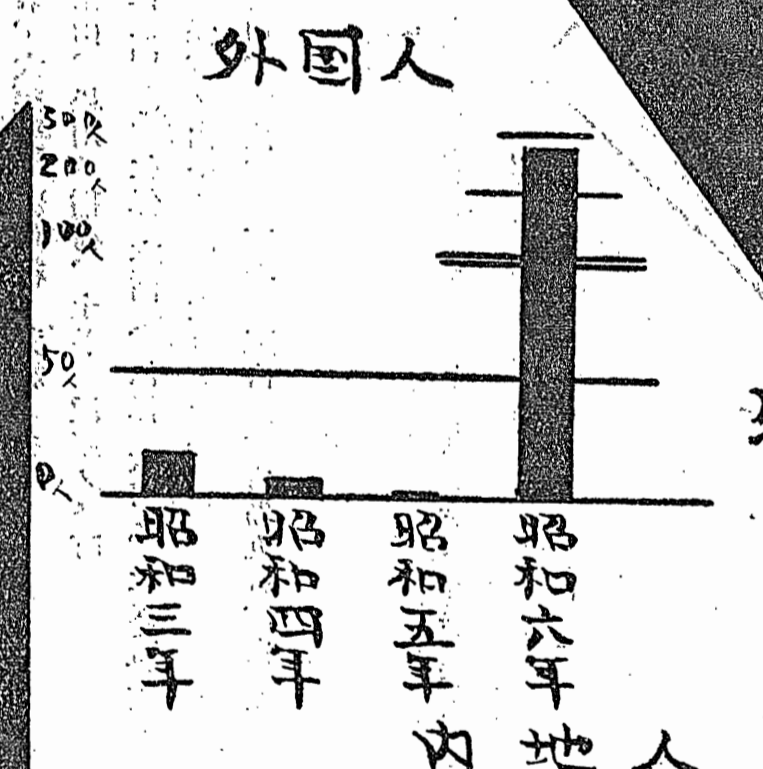 外国人
300人
200人
100人
50人
0人
昭和三年
昭和四年
昭和五年
昭和六年
内地人